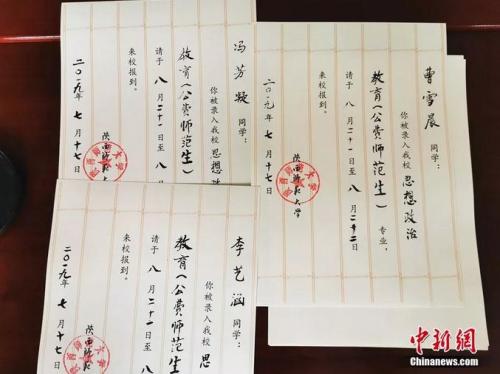 冯芳凝同学：
你被录入我校思想政
教育（公费师范生）
请于八月二十一日至八
来校报到。
陕西师范大
二〇一九年七月十七
曹雪晨同学：
你被录入我校思想政治
教育（公费师范生）专业，
请于八月二十一日至八月二十二日
来校报到。
陕西师范大学
二〇一九年七月十七
李艺涵同学：
你被录入我校思
教育（公费师范生
请于八月二十一日至八
来校报到。
陕西师范大
二〇一九年七月十七
中新网